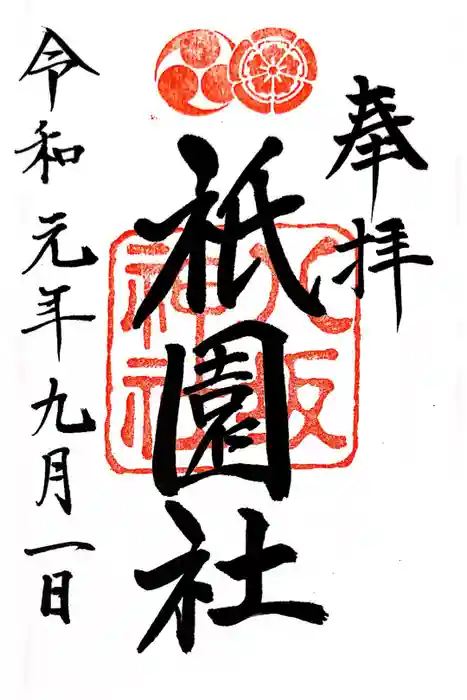 奉拝
祇園社
八坂
神社
令和元年九月一日